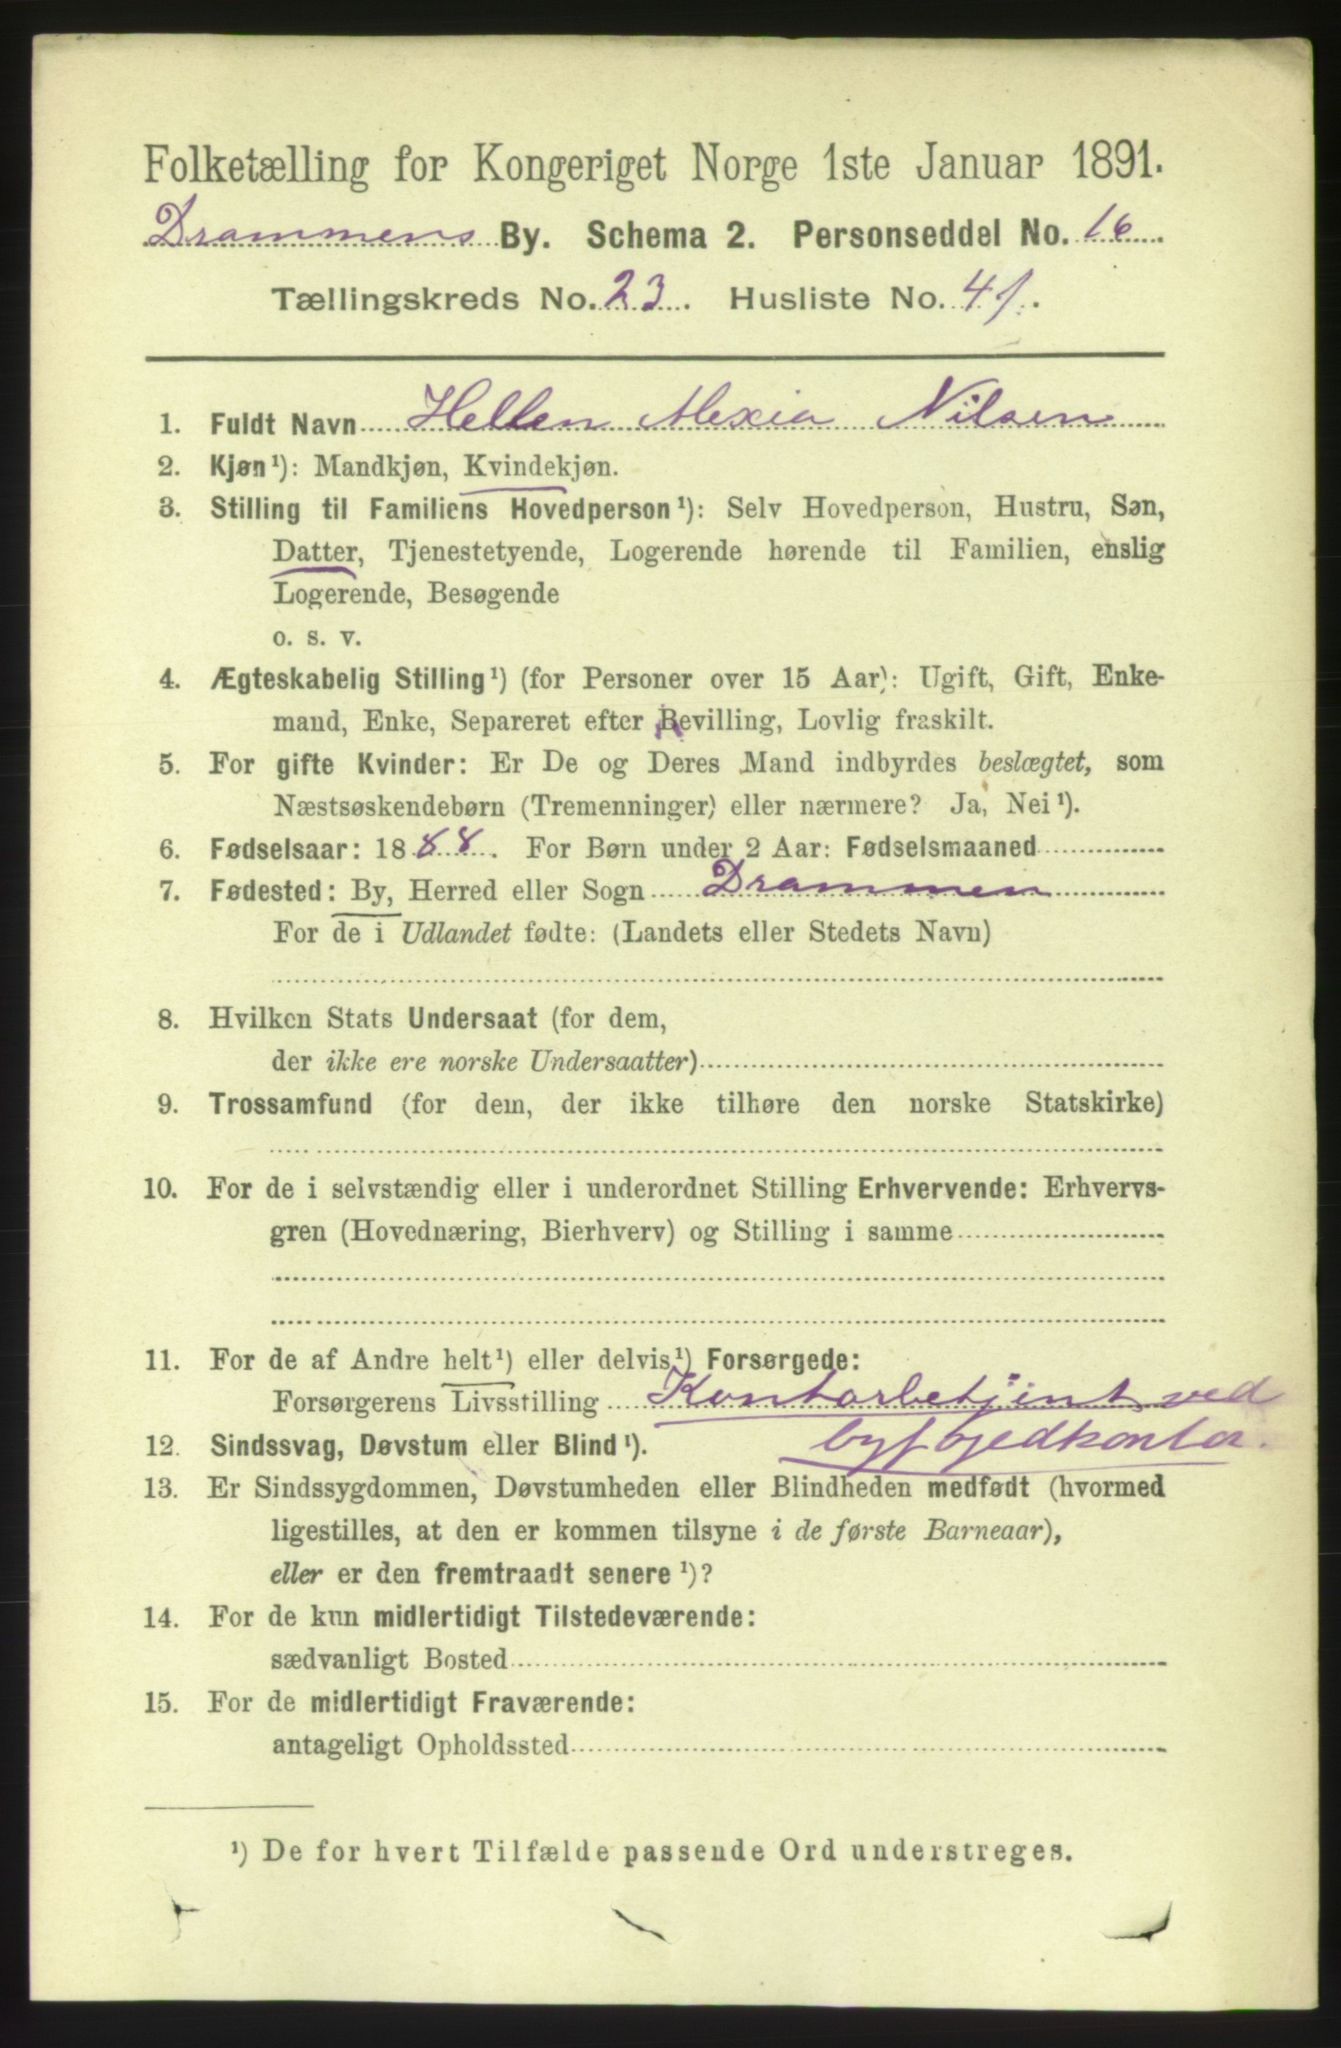 Folketælling for Kongeriget Norge 1ste Januar 1891.
Drammens By. Schema 2. Personseddel No. 16
Tællingskreds No. 23. Husliste No. 41.
1. Fuldt Navn Hellen Alexia Nilsen
2. Kjøn¹): Mandkjøn, Kvindekjøn.
3. Stilling til Familiens Hovedperson¹): Selv Hovedperson, Hustru, Søn,
Datter, Tjenestetyende, Logerende hørende til Familien, enslig
Logerende, Besøgende
o. s. v.
4. Ægteskabelig Stilling¹) (for Personer over 15 Aar): Ugift, Gift, Enke-
mand, Enke, Separeret efter Bevilling, Lovlig fraskilt.
5. For gifte Kvinder: Er De og Deres Mand indbyrdes beslægtet, som
Næstsøskendebørn (Tremenninger) eller nærmere? Ja, Nei¹).
6. Fødselsaar: 1888. For Børn under 2 Aar: Fødselsmaaned
7. Fødested: By, Herred eller Sogn Drammen
For de i Udlandet fødte: (Landets eller Stedets Navn)
8. Hvilken Stats Undersaat (for dem,
der ikke ere norske Undersaatter)
9. Trossamfund (for dem, der ikke tilhøre den norske Statskirke)
10. For de i selvstændig eller i underordnet Stilling Erhvervende: Erhvervs-
gren (Hovednæring, Bierhverv) og Stilling i samme
11. For de af Andre helt¹) eller delvis¹) Forsørgede:
Forsørgerens Livsstilling Kontorbetjent ved
byfogedkontor.
12. Sindssvag, Døvstum eller Blind¹).
13. Er Sindssygdommen, Døvstumheden eller Blindheden medfødt (hvormed
ligestilles, at den er kommen tilsyne i de første Barneaar),
eller er den fremtraadt senere¹)?
14. For de kun midlertidigt Tilstedeværende:
sædvanligt Bosted
15. For de midlertidigt Fraværende:
antageligt Opholdssted
¹) De for hvert Tilfælde passende Ord understreges.